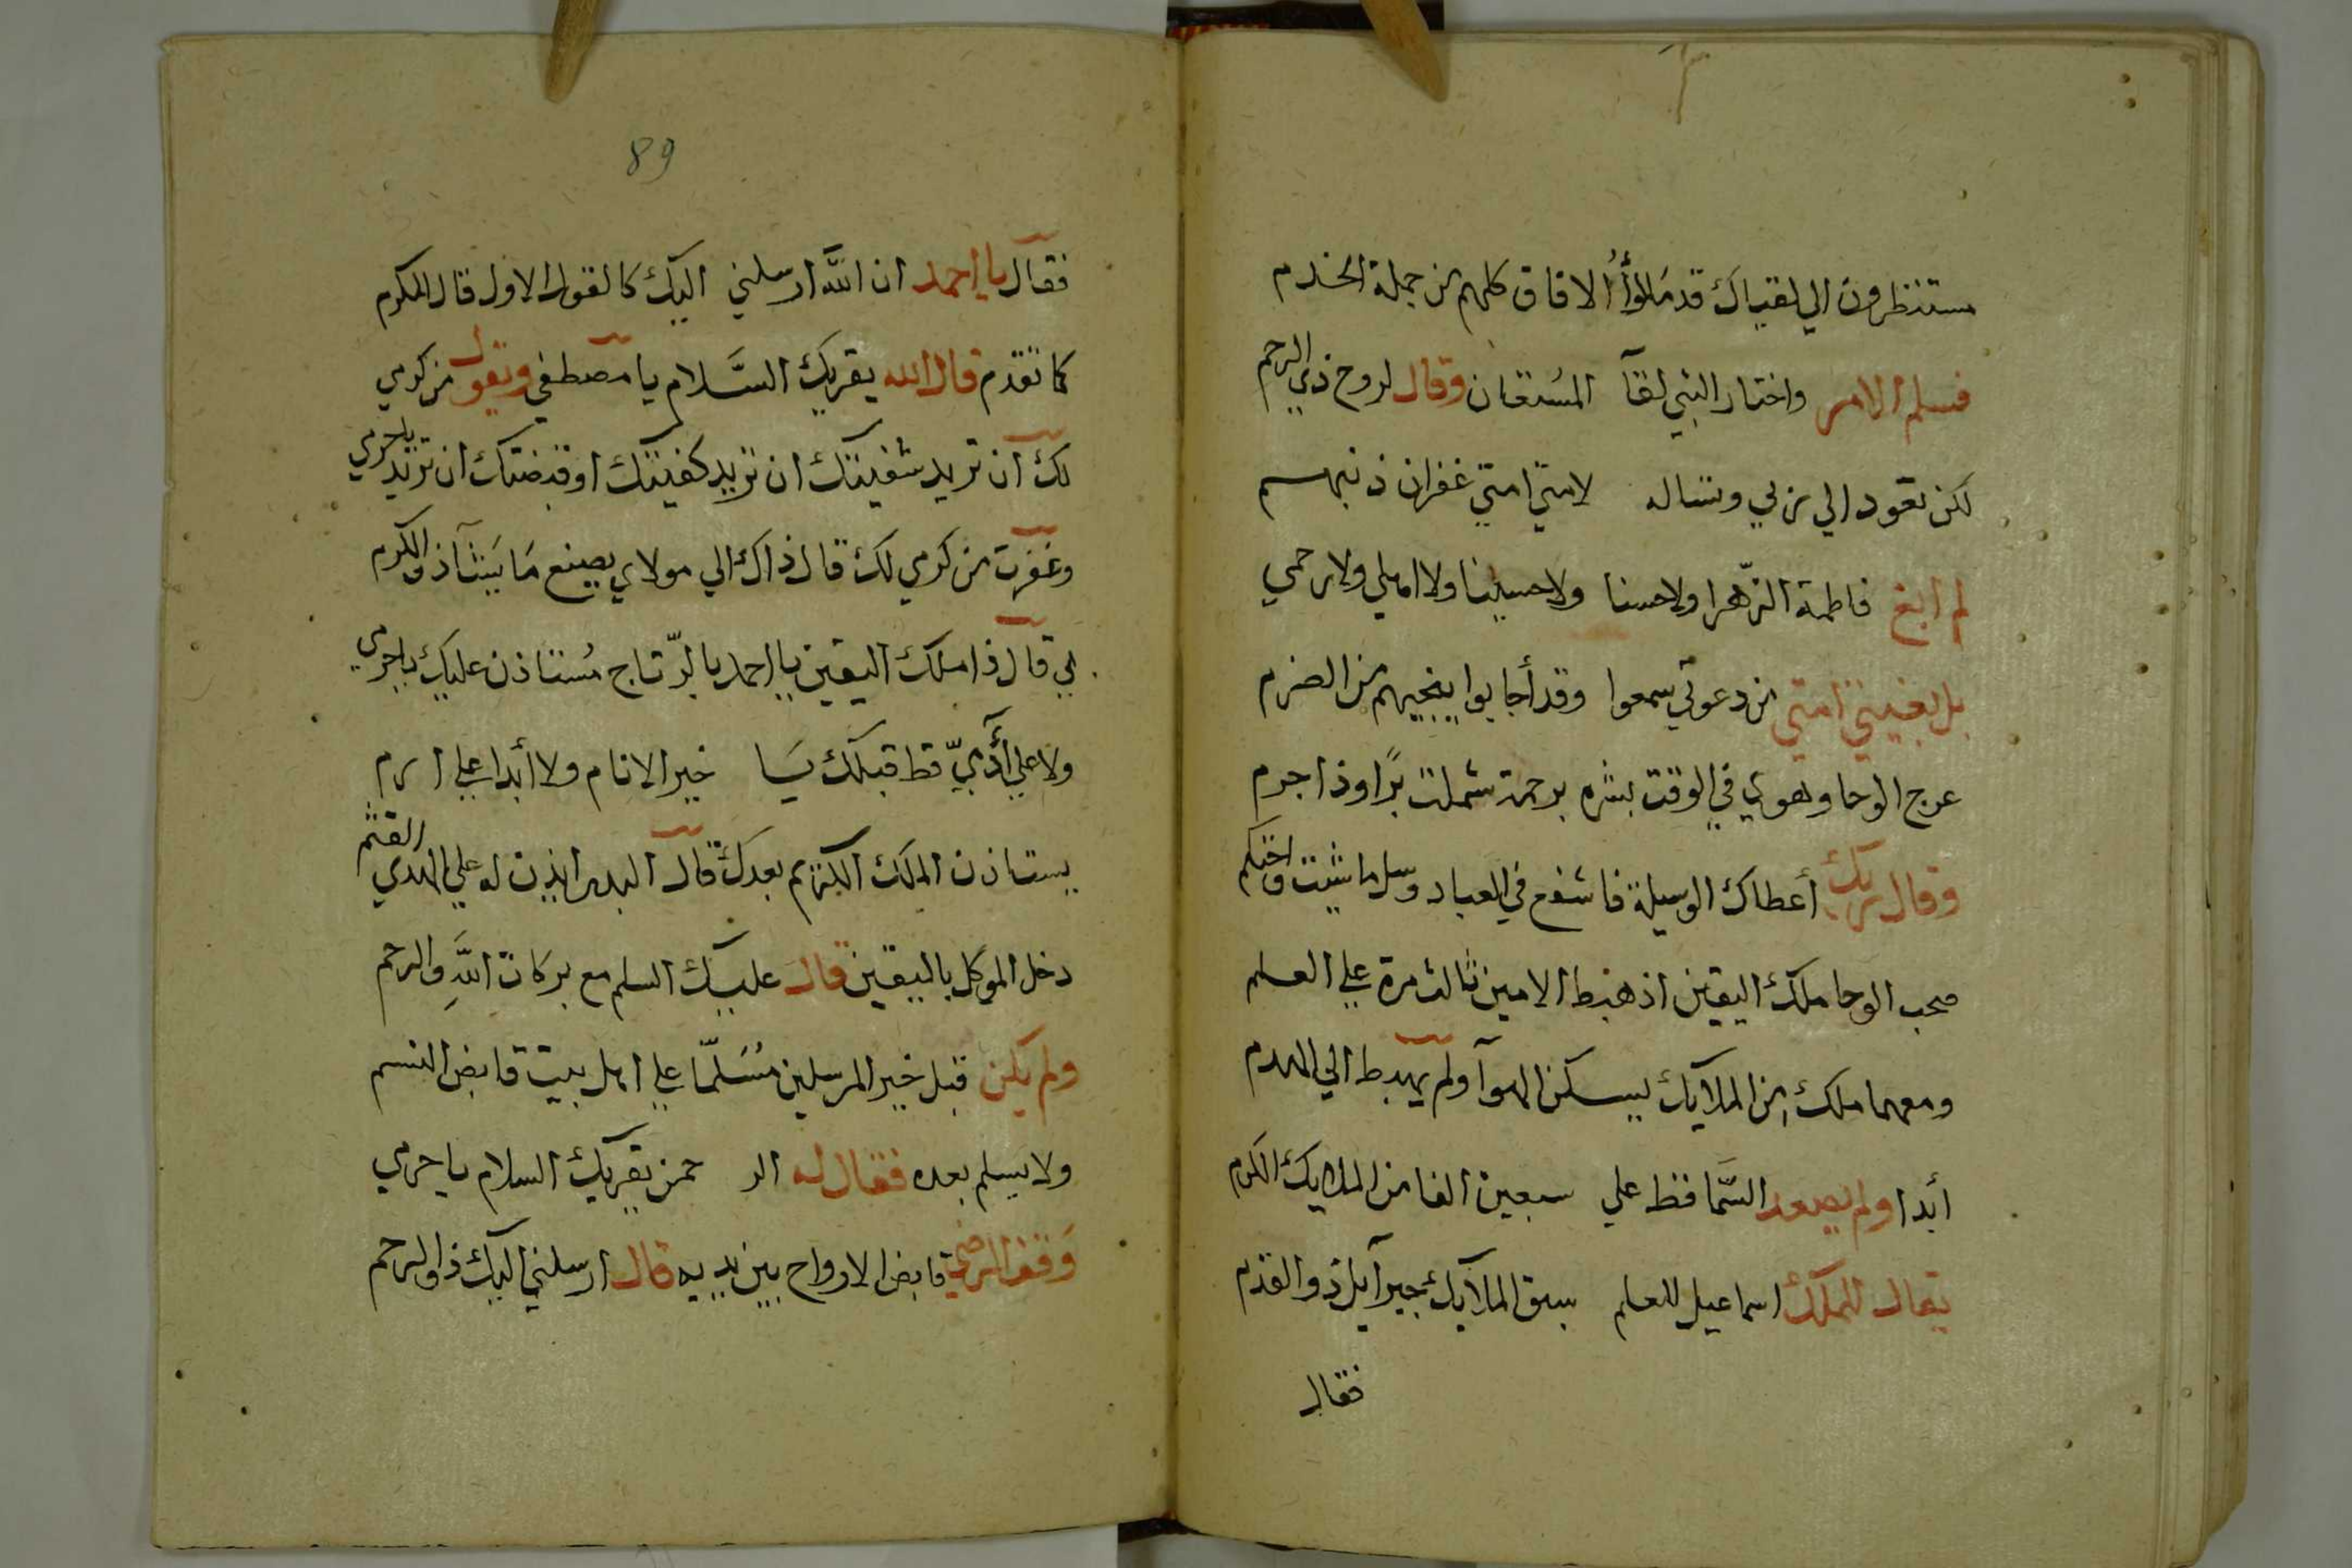 مستنظرون الي لقياك قد مَلؤُا الافاق كلهم من جملة الخدم
فسلم الامر واختار النبي لقآ المستعان وقال لروح ذي الرحم
لكن تعود الي ربي وتساله لامتي امتي غفران ذنبهم
لم ابغ فاطمة الزهرا ولا حسنا ولا حسينا ولا اهلي ولا رحمي
بل بغيتي امتي من دعوتي سمعوا وقد أجابوا ينجيهم من الضرم
عرج الوحا وهوي في الوقت بشره برحمة شملت برًا وذا جرم
وقال ربك أعطاك الوسيلة فاشفع في العباد وسل ما شيت واحتكم
صحب الوحا ملك اليقين اذ هبط الامين ثالث مرة علي العلم
ومعهما ملك من الملايك يسكن الهوآ ولم يهبط الي الهدم
أبدا ولم يصعد السَّما قط علي سبعين الفا من الملايك الكرم
يقال للملك اسماعيل للعلم سبق الملايك جبرآيل ذو القدم
فقال
89
فقال يا احمد ان اللَّه ارسلني اليك كالقول الاول قال المكرم
كما تقدم قال الله يقريك السَّلام يا مصطفي ويقول من كرمي
لك ان تريد شفيتك ان تريد كفيتك او قبضتك ان تريد يا حرمي
وغفرت من كرمي لك قال ذاك الي مولاي يصنع مَا يَشآ ذو الكرم
بي قال ذا ملك اليقين يا احمد بالرتاج مُستاذن عليك يا حرمي
ولا علي أدَميّ قط قبلك يَا خير الانام ولا أبدا علي ارم
يستاذن الملك الكريم بعدك قال البدر ايذن له علي الهدي القثم
دخل الموكل باليقين قال عليك السلم مع بركات اللَّهِ والرحم
ولم يكن قبل خير المرسلين مُسَلّمًا علي اهل بيت قابض النسم
ولا يسلم بعده فقال له الر حمن يقريك السلام يا حرمي
وَقف الرضي قابض الارواح بين يديه قال ارسلني اليك ذو الرحم